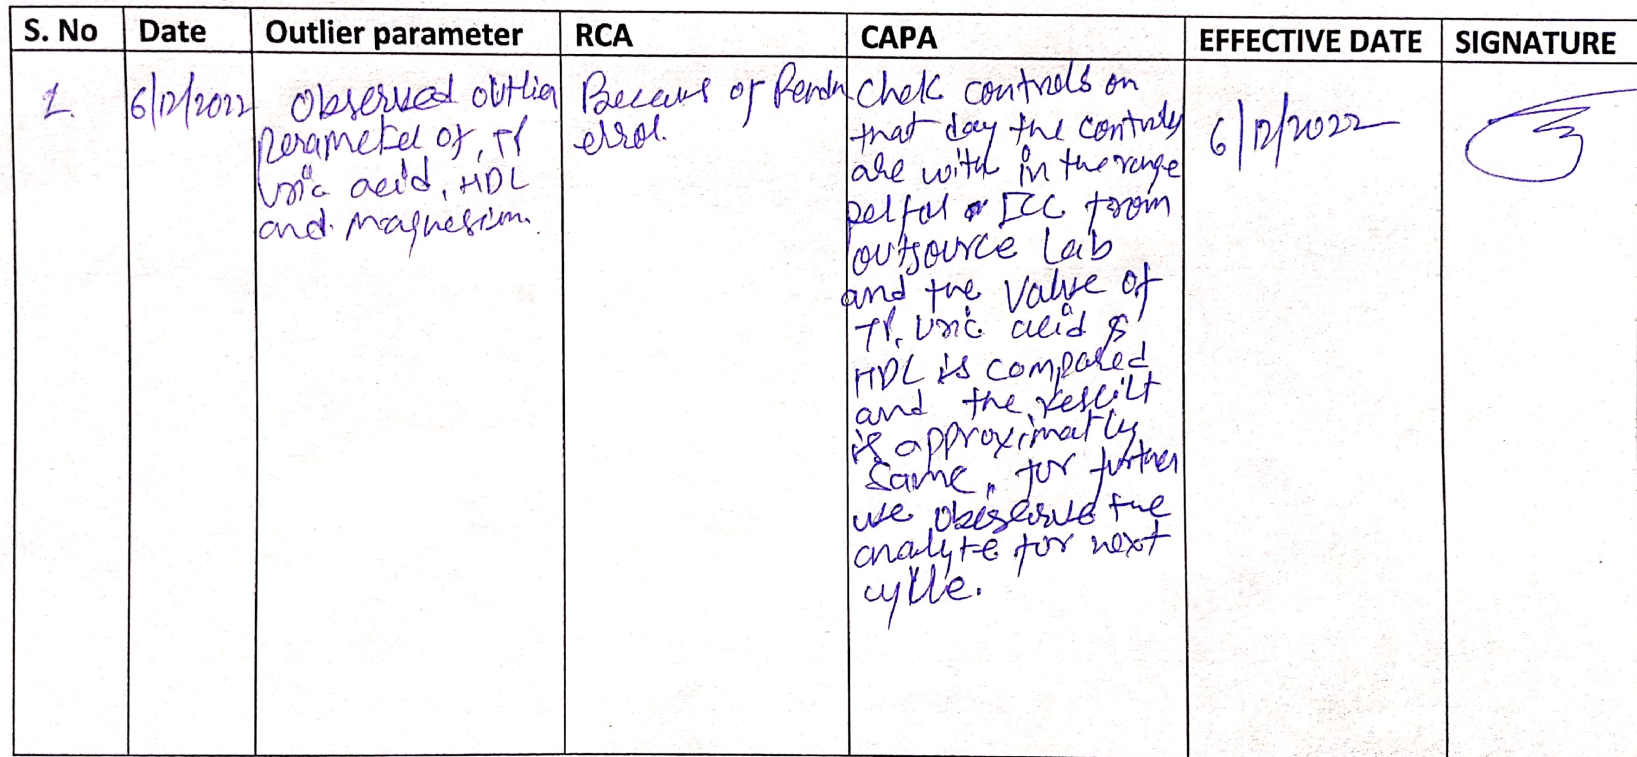 S. No Date Outlier parameter RCA CAPA EFFECTIVE DATE SIGNATURE
1. 6/12/2022
Observed outlier
parameter of, TP
Uric acid, HDL
and Magnesium.
of
error.
Chek controls on
that day the controls
are with in the range
ILC from
outsource Lab
and the Value of
TP, Uric acid &
HDL is compared
and the result
is approximatly
Same, for further
we observe the
analyte for next
cycle.
6/12/2022